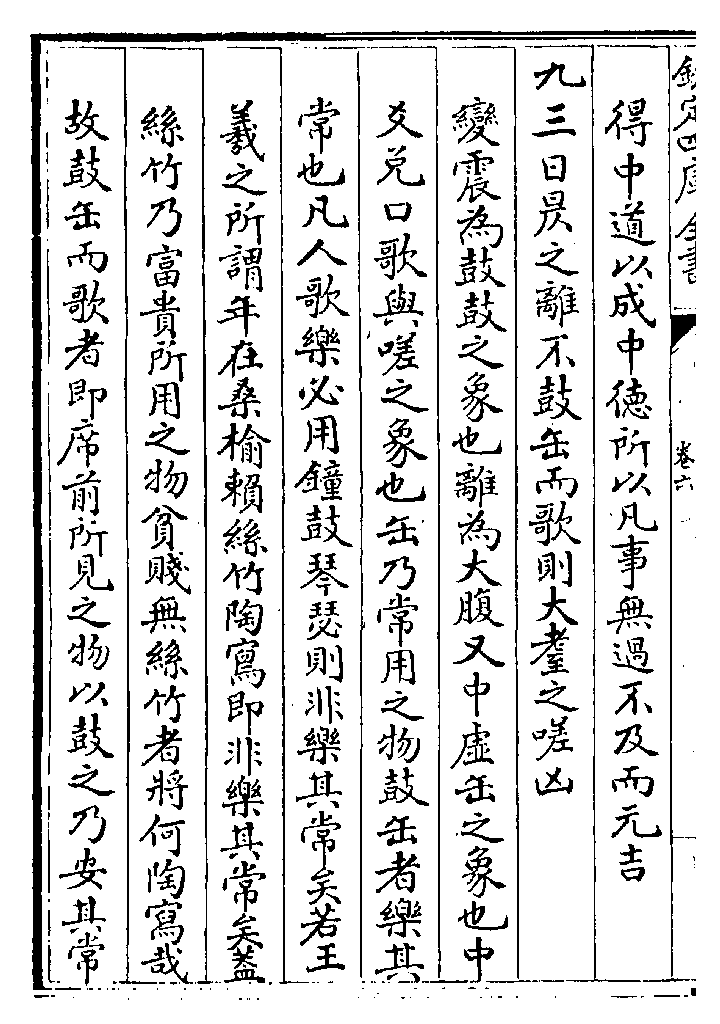 欽定四庫全書
卷六
得中道以成中德所以凡事無過不及而元吉
九三日昃之離不鼓缶而歌則大耋之嗟凶
變震為鼓鼓之象也離為大腹又中虛缶之象也中
爻兌口歌與嗟之象也缶乃常用之物鼓缶者樂其
常也凡人歌樂必用鐘鼓琴瑟則非樂其常矣若王
羲之所謂年在桑榆賴絲竹陶寫即非樂其常矣葢
絲竹乃富貴所用之物貧賤無絲竹者將何陶寫哉
故鼓缶而歌者即席前所見之物以鼓之乃安其常